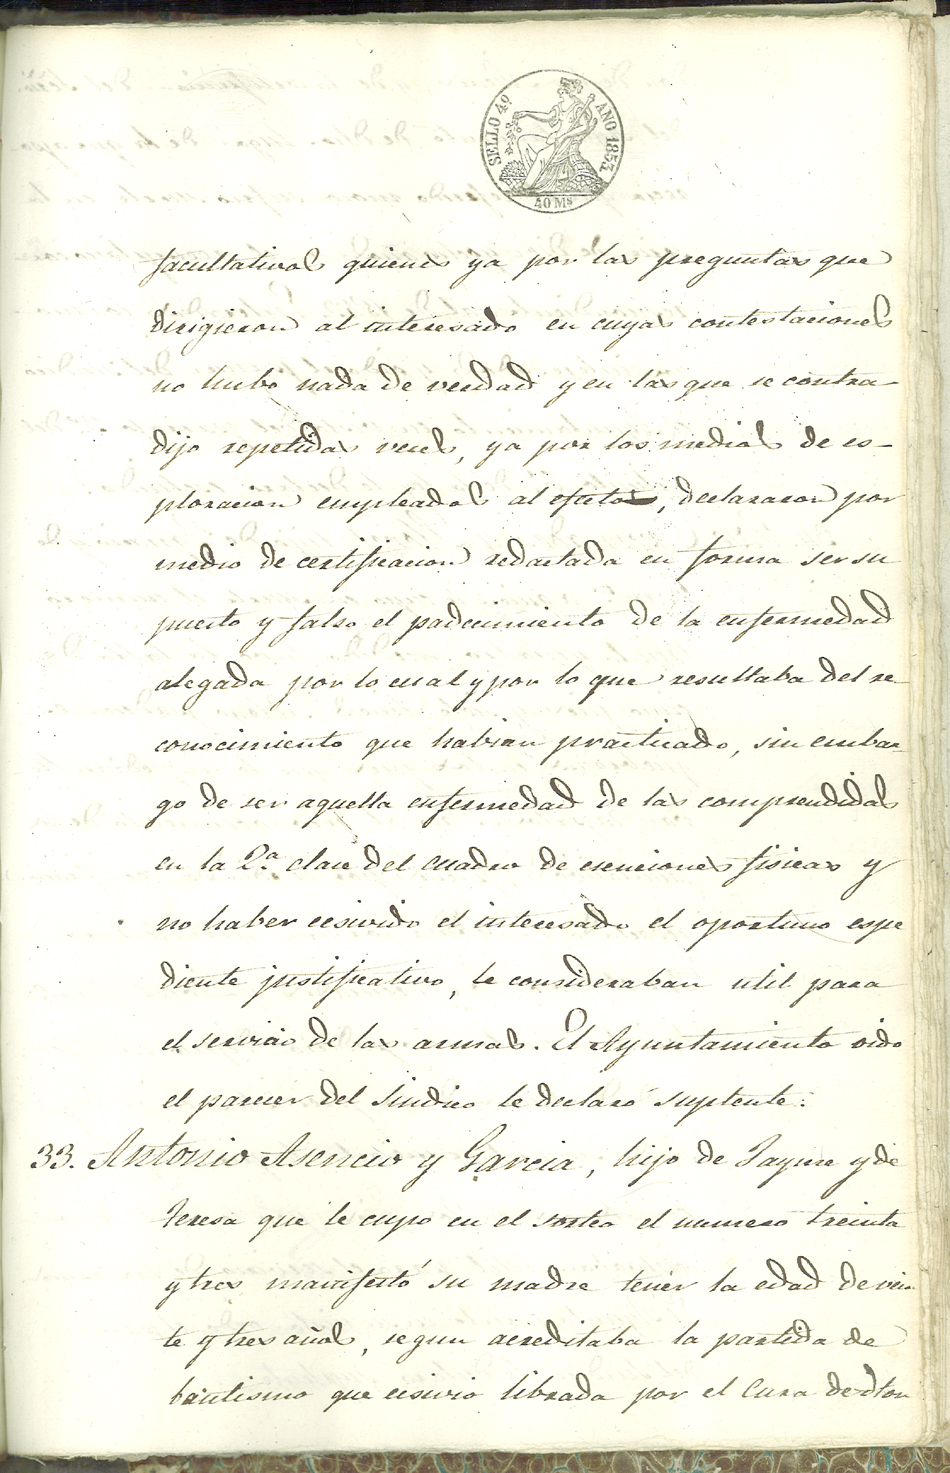 SELLO 4º AÑO 1853.
40 Ms
facultativos quienes ya por las preguntas que
dirigieron al interesado en cuyas contestaciones
no hubo nada de verdad y en las que se contra-
dijo repetidas veces, ya por los medios de es-
ploracion empleados al efecto, declararon por
medio de certificacion redactada en forma ser su
puesto y falso el padecimiento de la enfermedad
alegada por lo cual y por lo que resultaba del re-
conocimiento que habian practicado, sin embar-
go de ser aquella enfermedad de las comprendidas
en la 2.ª clase del cuadro de esenciones fisicas y
no haber ecsivido el interesado el oportuno espe
diente justificativo, le consideraban util para
el servicio de las armas. El Ayuntamiento oido
el parecer del Sindico le declaró suplente.
33. Antonio Asencio y Garcia, hijo de Jayme y de
Teresa que le cupo en el sorteo el numero treinta
y tres manifestó su madre tener la edad de vein
te y tres años, segun acreditaba la partida de
bautismo que ecsivio librada por el Cura de